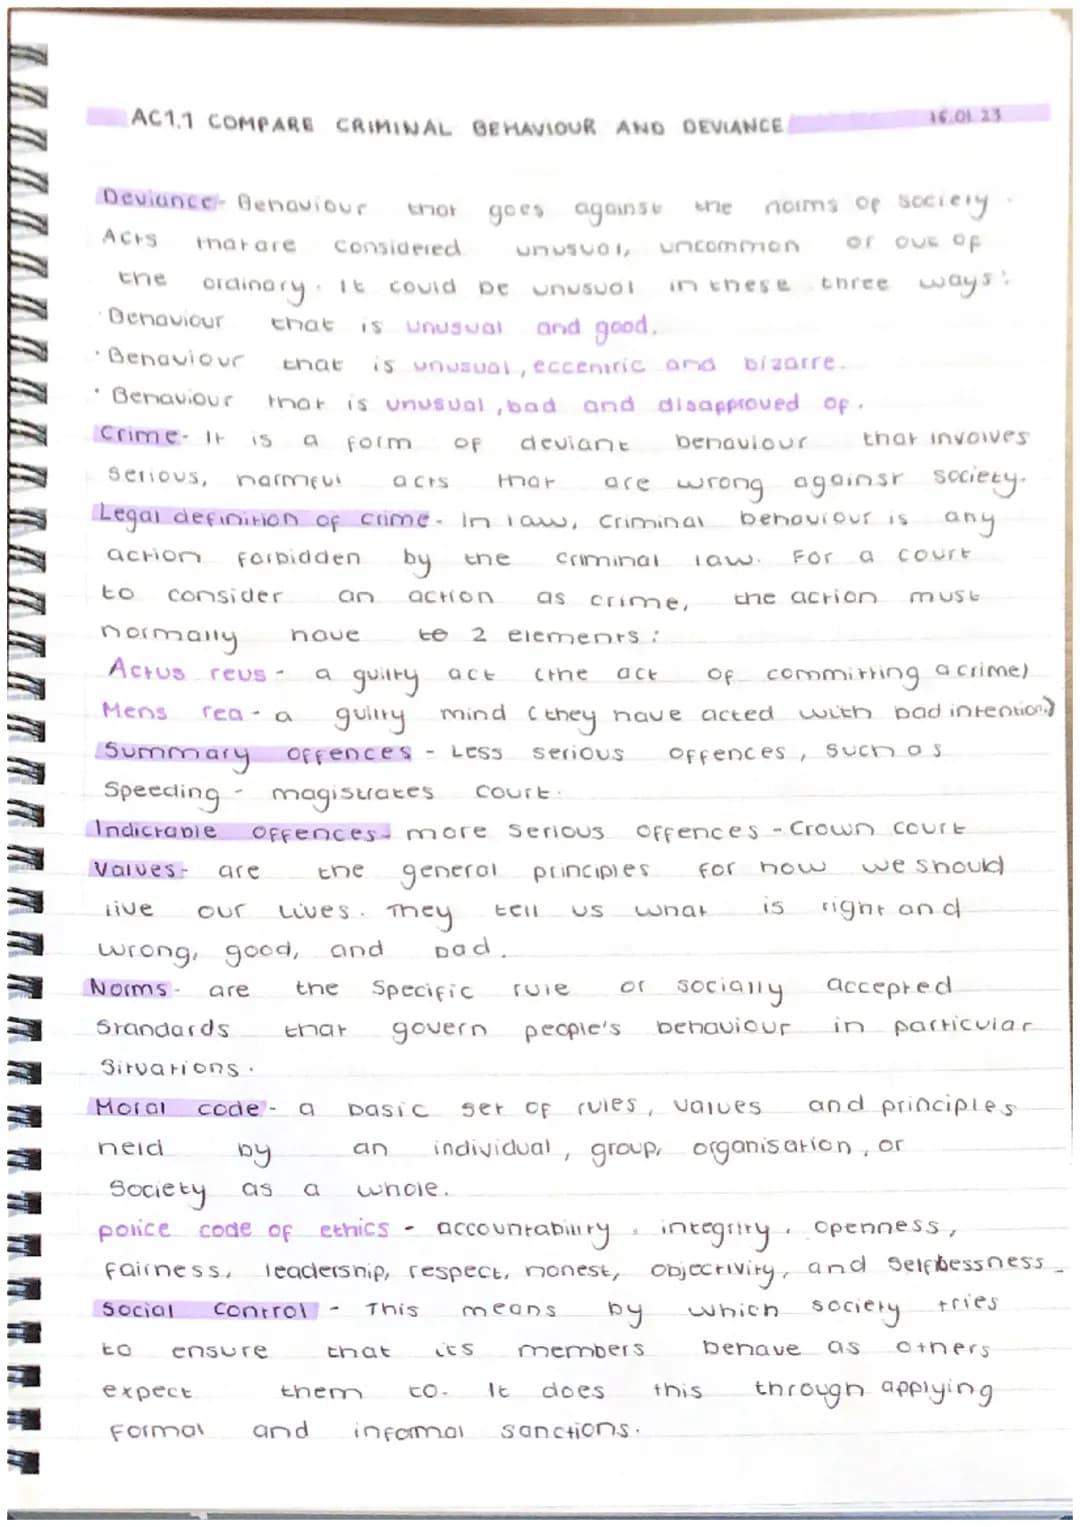 AC1.1 COMPARE CRIMINAL BEHAVIOUR AND DEVIANCE 16.01.23
Deviance- Behaviour that goes against the norms of society.
Acts that are considered unusual, uncommon or out of
the ordinary. It could be unusual in these three ways:
· Behaviour that is unusual and good.
· Behaviour that is unusual, eccentric and bizarre.
· Behaviour that is unusual, bad and disapproved of.
Crime- It is a form of deviant behaviour that involves
serious, harmful acts that are wrong against society.
Legal definition of crime- In law, criminal behaviour is any
action forbidden by the criminal law. For a court
to consider an action as crime, the action must
normally have te 2 elements:
Actus reus- a guilty act (the act of committing a crime)
Mens rea- a guilty mind (they have acted with bad intention)
Summary offences - Less serious offences, such as
Speeding - magistrates court.
Indictable offences- more serious offences - Crown court
Values- are the general principles for how we should
live our lives. They tell us what is right and
wrong, good, and bad.
Norms- are the specific rule or socially accepted
Standards that govern people's behaviour in particular
Situations.
Moral code- a basic set of rules, values and principles
held by an individual, group, organisation, or
Society as a whole.
police code of ethics - accountability, integrity, openness,
fairness, leadership, respect, honest, objectivity, and Selflessness
Social control - This means by which society tries
to ensure that its members behave as others
expect them to. It does this through applying
Formal and informal sanctions.